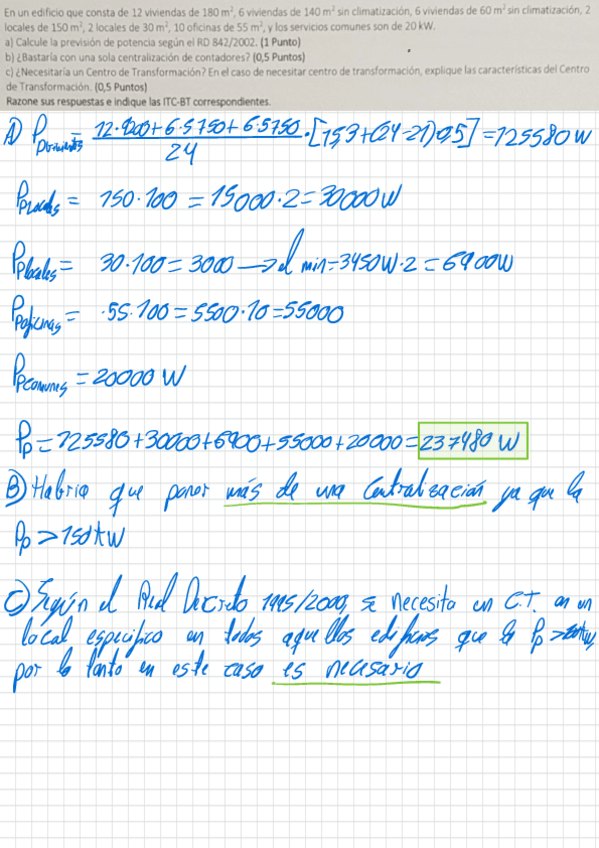 En un edificio que consta de 12 viviendas de 180 m², 6 viviendas de 140 m² sin climatización, 6 viviendas de 60 m² sin climatización, 2
locales de 150 m², 2 locales de 30 m², 10 oficinas de 55 m², y los servicios comunes son de 20 kW.
a) Calcule la previsión de potencia según el RD 842/2002. (1 Punto)
b) ¿Bastaría con una sola centralización de contadores? (0,5 Puntos)
c) ¿Necesitaría un Centro de Transformación? En el caso de necesitar centro de transformación, explique las características del Centro
de Transformación. (0,5 Puntos)
Razone sus respuestas e indique las ITC-BT correspondientes.
A) Ppviviendas = 12·9200+6·5750+6·5750 / 24 · [15,3+(24-21)0,5] = 125580 W
Pplocales = 150·100 = 15000·2 = 30000W
Pplocales = 30·100 = 3000 → el min = 3450W·2 = 6900W
Ppoficinas = ·55·100 = 5500·10 = 55000
Ppcomunes = 20000 W
Pp = 125580+30000+6900+55000+20000 = 237480 W
B) Habria que poner más de una Centralización ya que la
Pp > 150kW
C) Según el Real Decreto 1995/2000, se necesita un C.T. en un
local especifico en todos aquellos edificios que la Pp >
por lo tanto en este caso es necesario